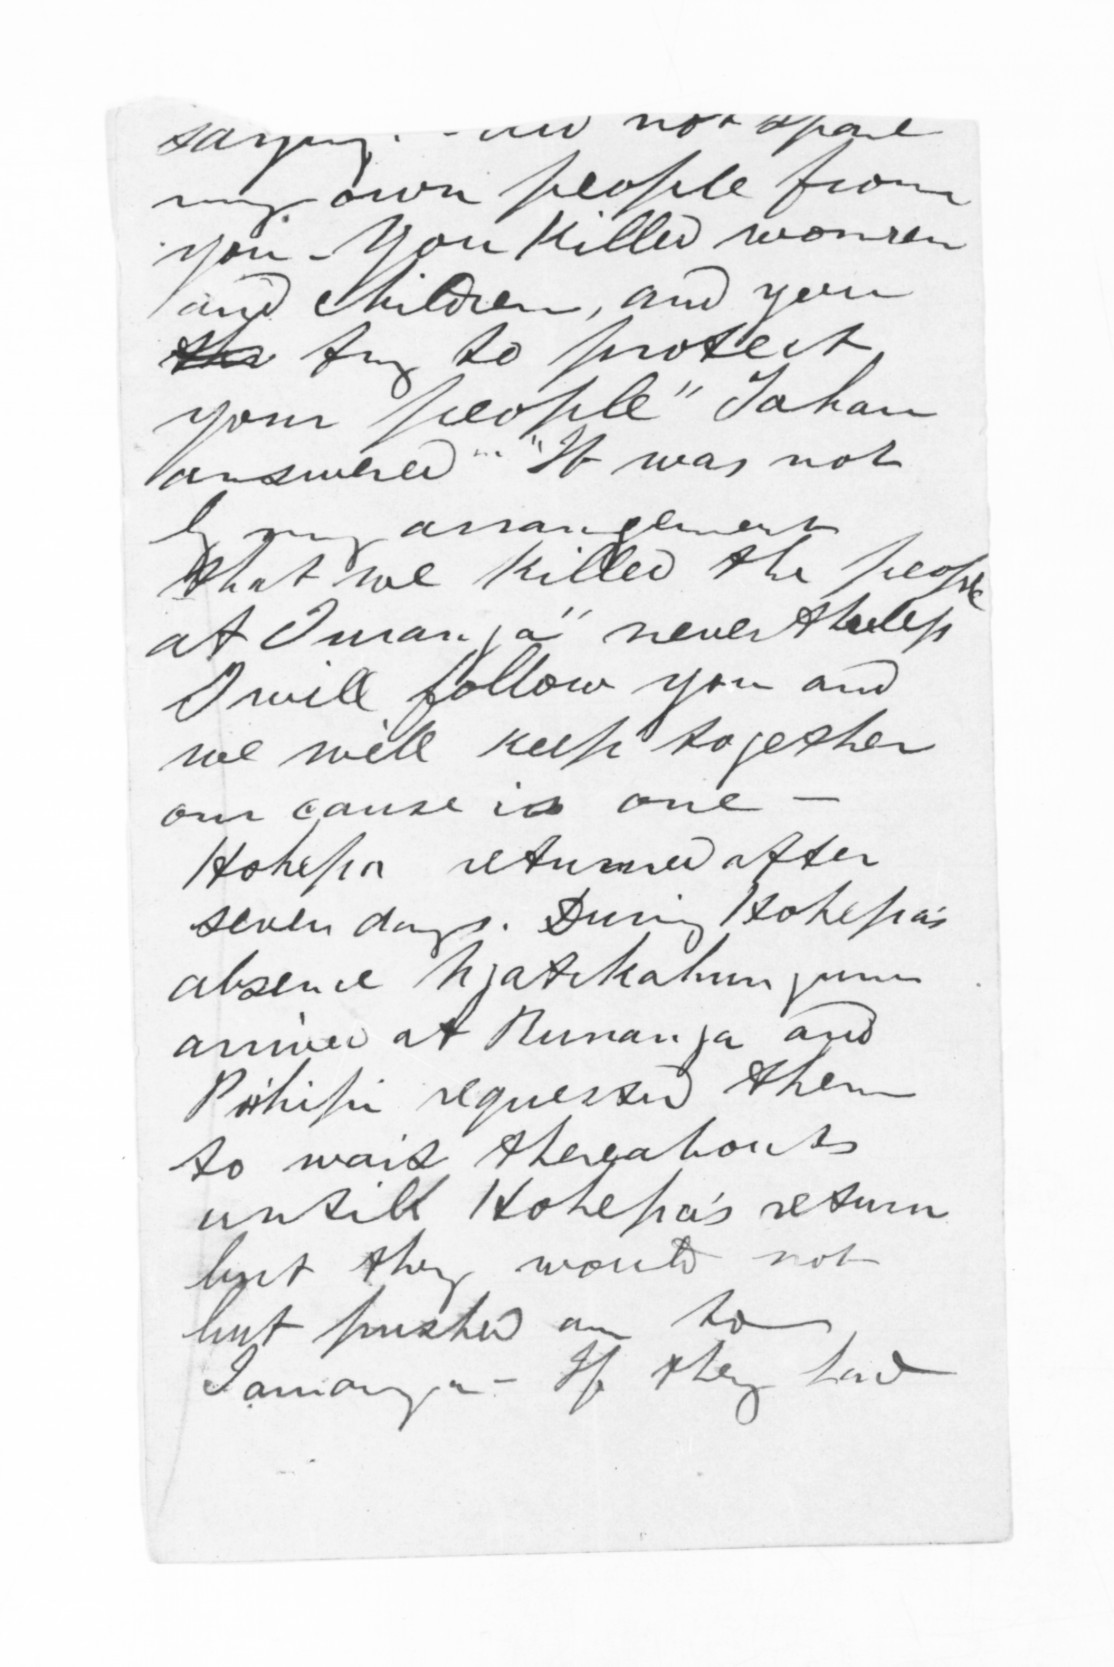 saying. - did not spare
my own people from
you - You killed women
and children, and you
try to protect
your people" Tahau
answered "It was not
by my arrangement
that we killed the people
at Turanga" nevertheless
I will follow you and
we will keep together
our cause is one -
Hohepa returned after
seven days. During Hohepa's
absence Ngatikahungunu
arrived at Runanga and
Poihipi requested them
to wait thereabouts
untill Hohepa's return
but they would not
but pushed on to
Tauranga - If they had